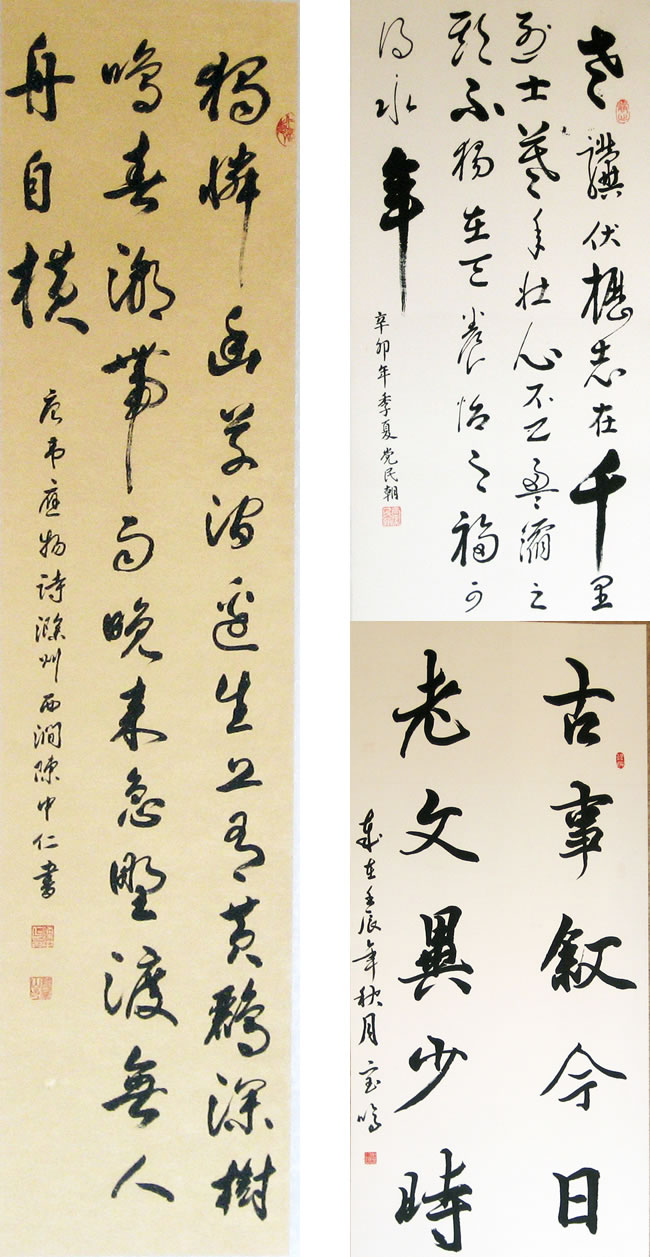 獨憐幽草澗邊生上有黄鸝深樹
鳴春潮帶雨晚来急野渡無人
舟自横
唐韦應物詩滁州西澗陳中仁書
老驥伏櫪志在千里
烈士暮年壮心不已盈縮之
期不独在天養怡之福可
得永年
辛卯年季夏党民朝
古事叙今日
老文異少時
歲在壬辰年秋月宝鳴